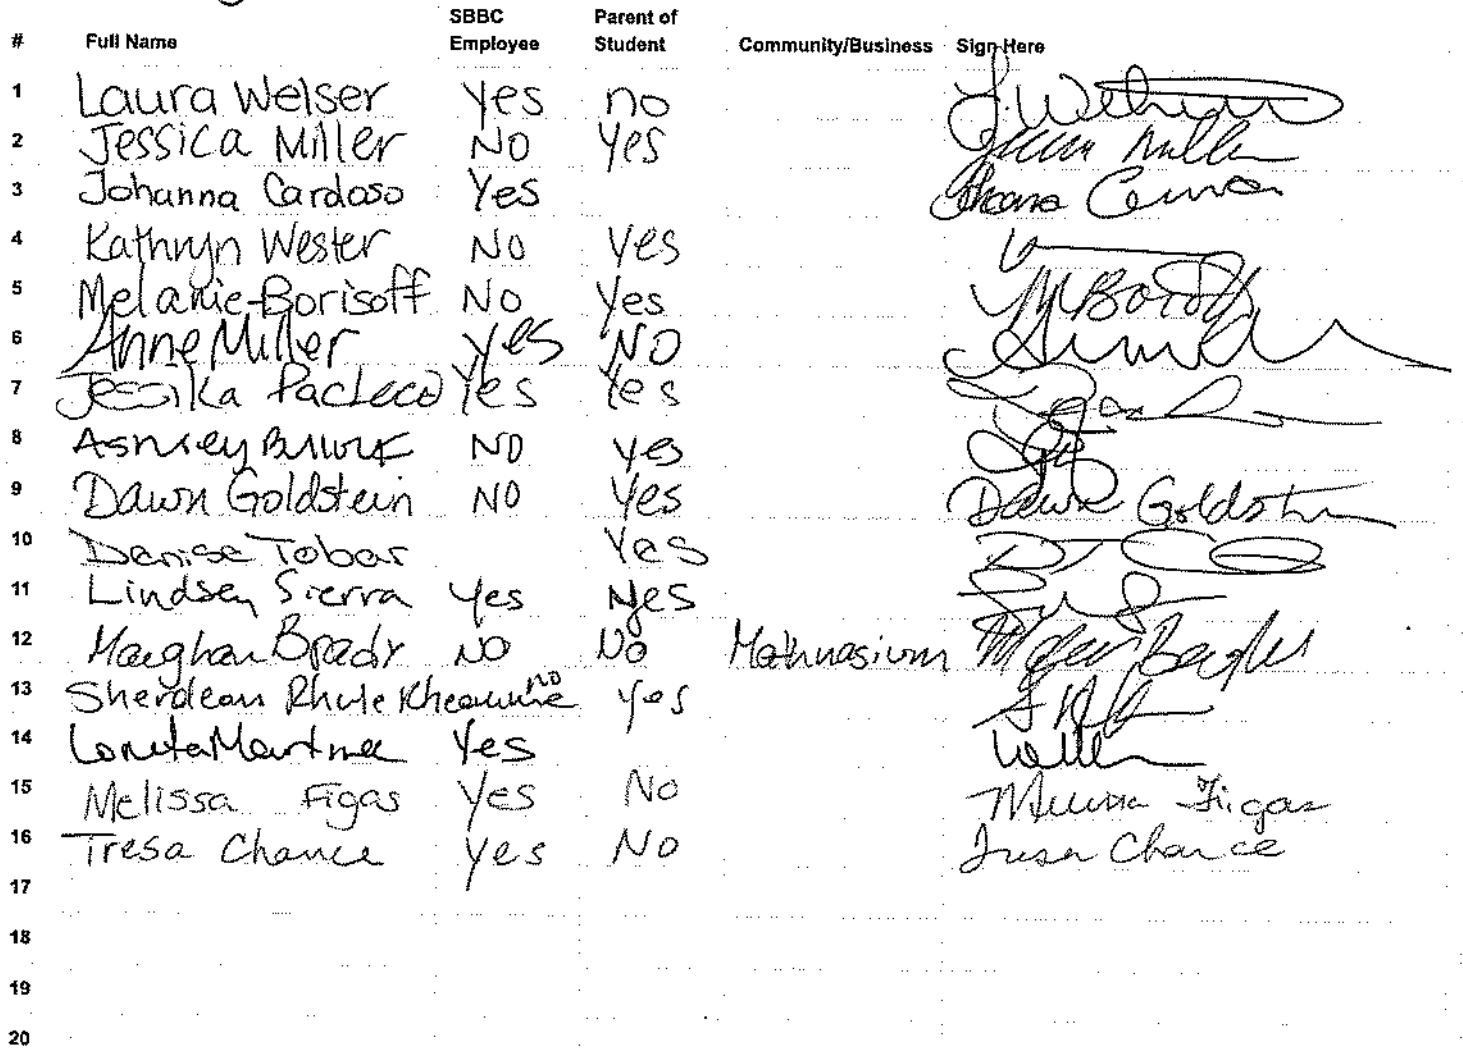 SBBC Parent of
# Full Name Employee Student Community/Business Sign Here
1 Laura Welser Yes no
2 Jessica Miller NO Yes
3 Johanna Cardoso Yes
4 Kathryn Wester NO Yes
5 Melanie Borisoff NO Yes
6 Anne Miller Yes NO
7 Jessika Pacheco Yes Yes
8 Ashley NO yes
9 Dawn Goldstein NO Yes Dawn Goldstein
10 Denise Tobar Yes
11 Lindsey Sierra Yes Yes
12 Maeghan NO No Mathnasium
13 Sherdean Rhule no yes
14 Yes
15 Melissa Figas Yes No Melissa Figas
16 Tresa Chance Yes No Tresa Chance
17
18
19
20